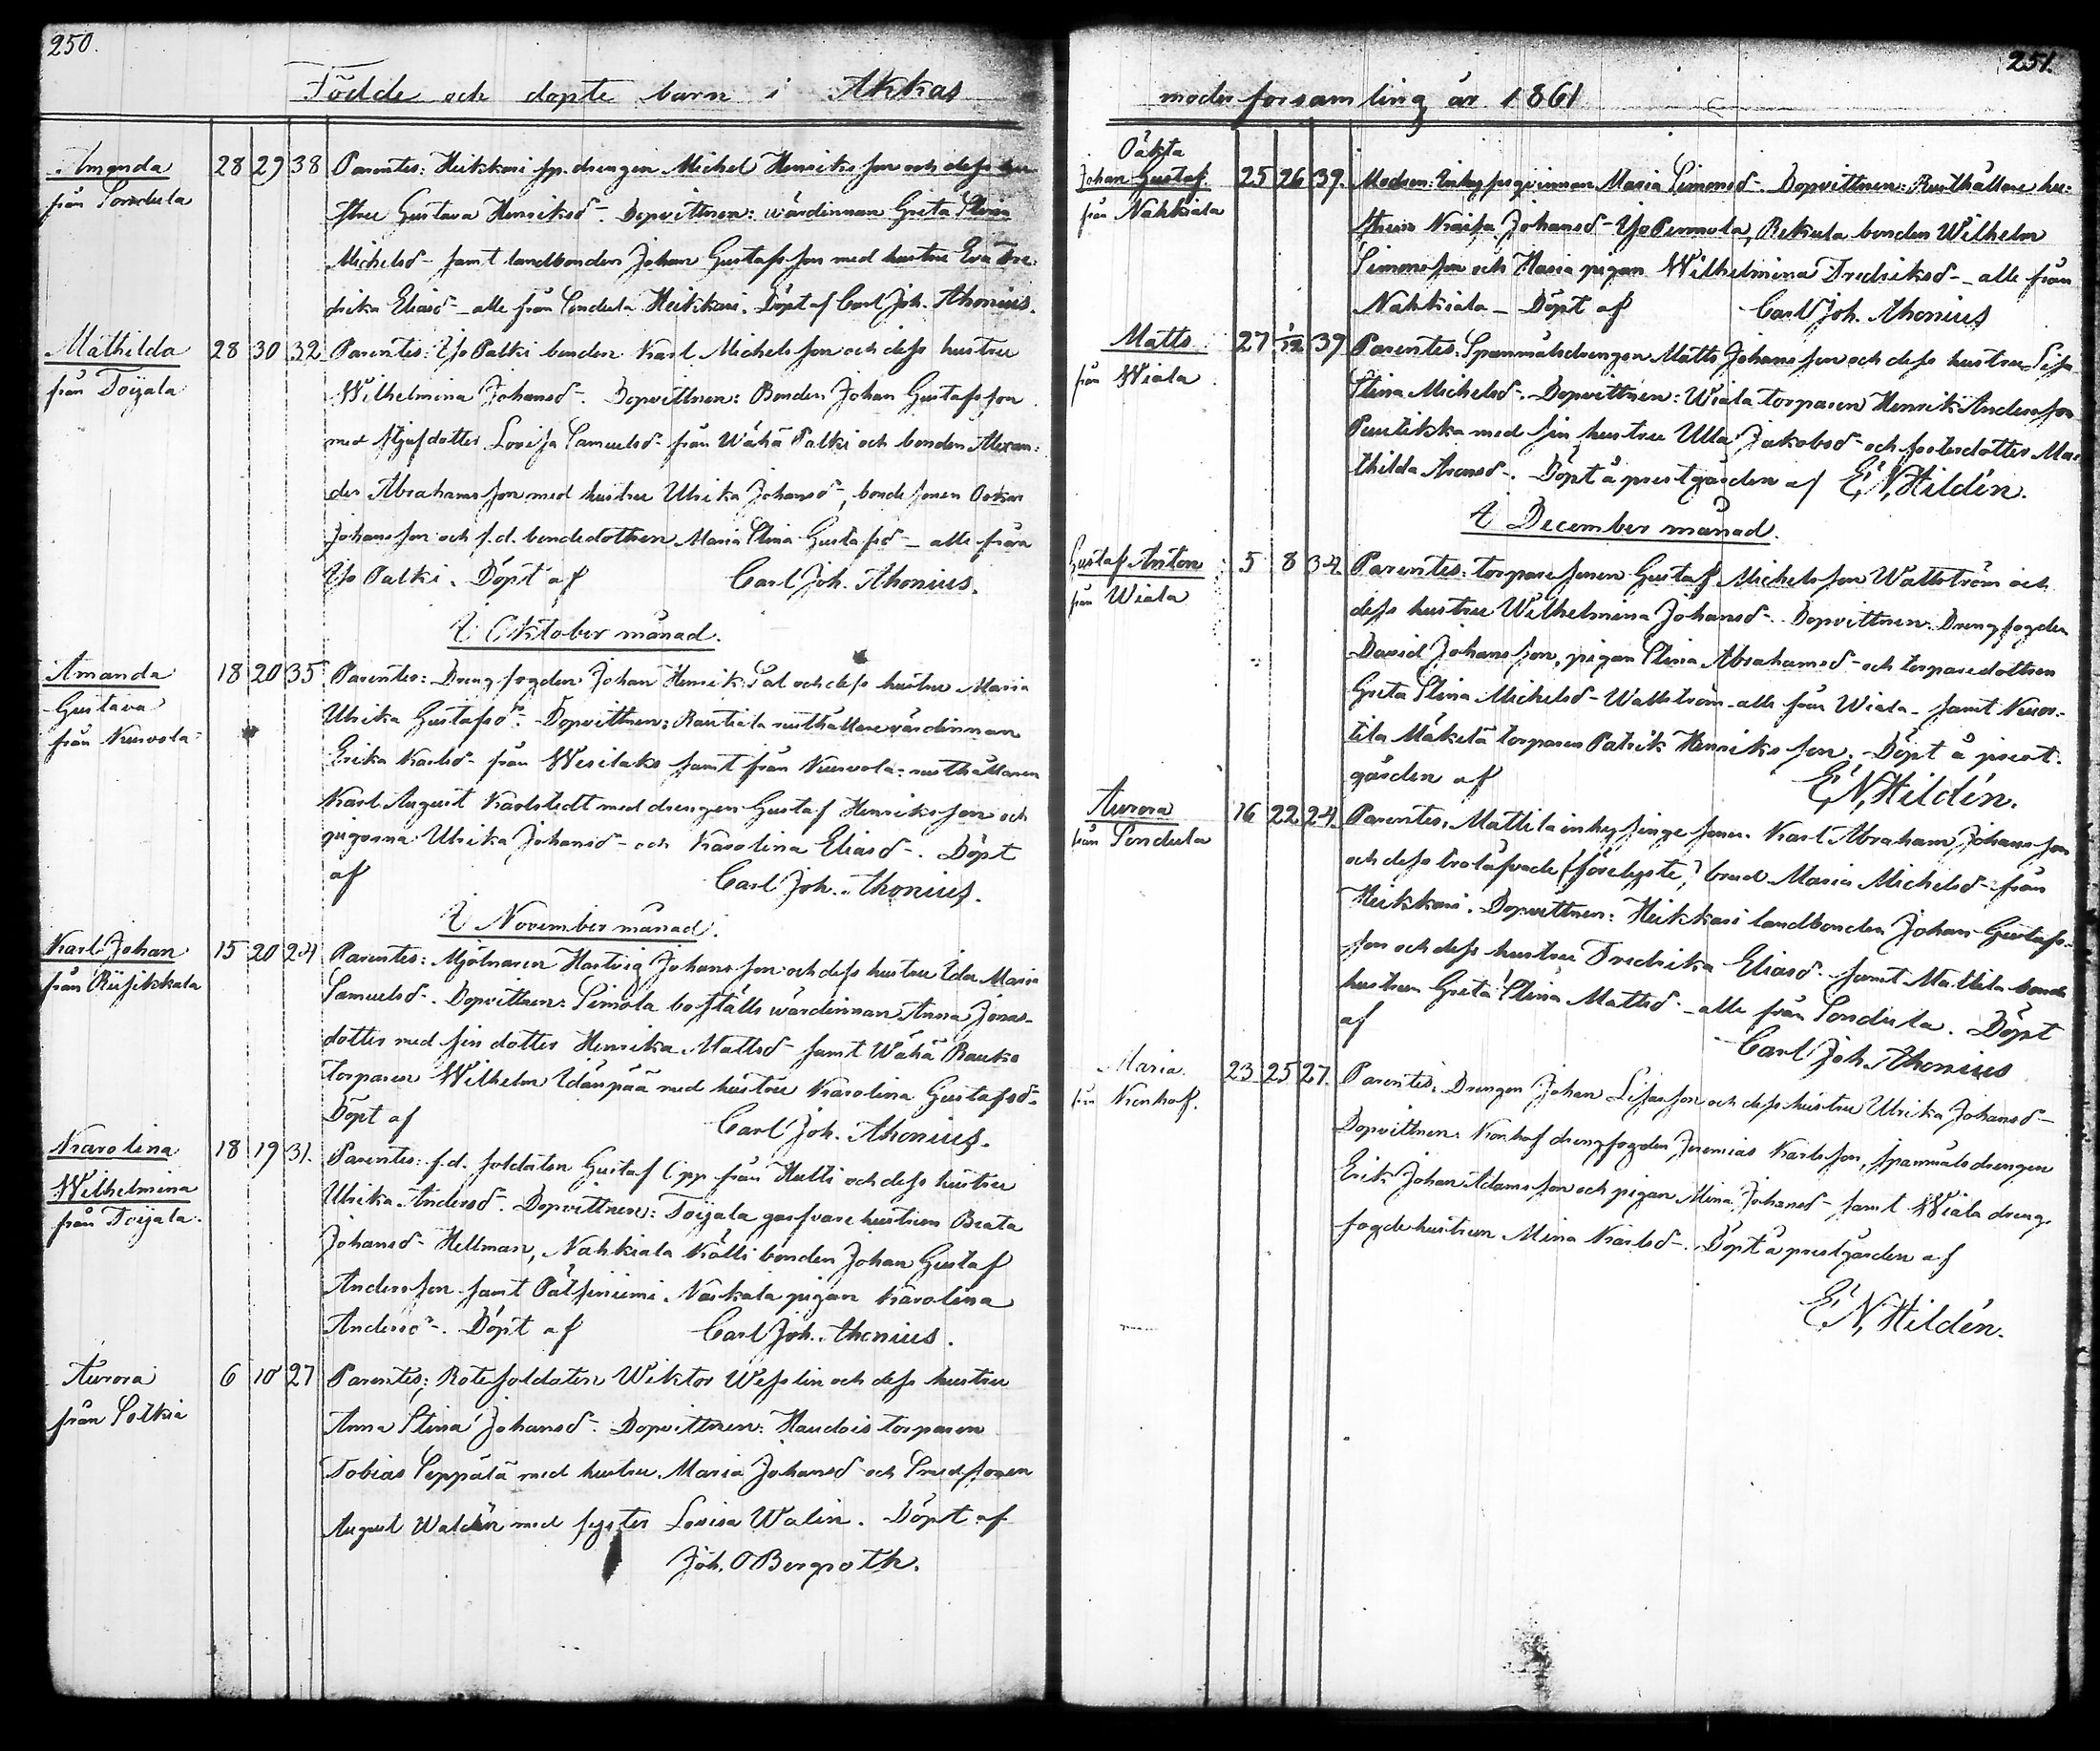 250.
Födde och döpte barn i Akkas
Amanda
från Sondula
28 29 38
Parentes: Heikkari sp. drengen Michel Henriksson och dess hu-
stru Gustava Henriksd-. Dopvittnen: wärdinnan Greta Stina
Michelsd- samt landbonden Johan Gustafsson med hustru Eva Fre-
drika Eliasd- alle från Sondula Heikkari. Döpt af Carl Joh. Ahonius.
Mathilda
från Toijala
28 30 32
Parentes: Yso Palki bonden Karl Michelsson och dess hustru
Wilhelmina Johansd-. Dopvittnen: Bonden Johan Gustafsson
med stjufdotter Lovisa Samuelsd- från Wähä Palki och bonden Alexan-
der Abrahamsson med hustru Ulrika Johansd-, bondesonen Oskar
Johansson och f.d. bondedottren Maria Stina Gustafsd- alle från
Yso Palki. Döpt af Carl Joh. Ahonius.
I Oktober månad.
Amanda
Gustava
från Kurvola
18 20 35
Parentes: Drengfogden Johan Henrik Sal och dess hustru Maria
Ulrika Gustafsd-. Dopvittnen: Rautiala rusthållarevärdinnan
Erika Karlsd- från Wesilaks samt från Kurvola: rusthållaren
Karl August Karlstedt med drengen Gustaf Henriksson och
pigorna Ulrika Johansd- och Karolina Eliasd-. Döpt
af Carl Joh. Ahonius.
I November månad.
Karl Johan
från Riisikkala
15 20 24
Parentes: Mjölnaren Hartvig Johansson och dess hustru Ida Maria
Samuelsd-. Dopvittnen: Simola boställs wärdinnan Anna Jonas-
dotter med sin dotter Henrika Mattsd- samt Wähä Rauko
torparen Wilhelm Idänpää med hustru Karolina Gustafsd-
Döpt af Carl Joh. Ahonius.
Karolina
Wilhelmina
från Toijala
18 19 31.
Parentes: f.d. soldaten Gustaf Opp från Hutti och dess hustru
Ulrika Andersd-. Dopvittnen: Toijala garfvare hustrun Beata
Johansd- Hellman, Nahkiala Kölli bonden Johan Gustaf
Andersson samt Pätsiniemi Närkala pigan Karolina
Andersd-. Döpt af Carl Joh. Ahonius.
Aurora
från Sotkia
6 10 27
Parentes: Rotesoldaten Wiktor Wesslin och dess hustru
Anna Stina Johansd-. Dopvittnen: Haudois torparen
Tobias Seppälä med hustru Maria Johansd- och Smedsonen
August Walden med syster Lovisa Walin. Döpt af
Joh. O Bergroth.
251.
moderforsamling år 1861
Oäkta
Johan Gustaf.
från Nahkiala
25 26 39.
Modren: Inhyses qvinnan Maria Simonsd-. Dopvittnen: Rusthållare hu-
strun Kaisa Johansd- Yso Permola, Rekula bonden Wilhelm
Simonsson och Hasia pigan Wilhelmina Fredriksd- alle från
Nahkiala - Döpt af Carl Joh. Ahonius
Matts
från Wiala
27 1/12 39
Parentes: Spannmålsdrengen Matts Johansson och dess hustru Lisa
Stina Michelsd-. Dopvittnen: Wiala torparen Henrik Andersson
Puutikka med sin hustru Ulla Jakobsd- och fosterdotter Ma-
thilda Aronsd-. Döpt å prestgården af E. N. Hildén.
I December månad.
Gustaf Anton
från Wiala
5 8 34.
Parentes: torparesonen Gustaf Michelsson Wallström och
dess hustru Wilhelmina Johansd-. Dopvittnen: Drengfogden
David Johansson, pigan Stina Abrahamsd- och torparedottren
Greta Stina Michelsd- Wallström alle från Wiala samt Kuor-
tila Mäkelä torparen Patrik Henriksson. Döpt å prest-
gården af E. N. Hildén.
Aurora
från Sondula
16 22 24.
Parentes: Mattila inhysinge sonen Karl Abraham Johansson
och dess trolåfvade (förelyste) brud Maria Michelsd- från
Heikkari. Dopvittnen: Heikkari landbonden Johan Gustafs-
son och dess hustru Fredrika Eliasd- samt Mattila bonde
hustrun Greta Stina Mattsd- alle från Sondula. Döpt
af Carl Joh. Ahonius
Maria
från Kronhof.
23 25 27.
Parentes: Drengen Johan Lisasson och dess hustru Ulrika Johansd-
Dopvittnen: Kronhof drengfogden Jeremias Karlsson, spannmålsdrengen
Erik Johan Adamsson och pigan Mina Johansd- samt Wiala dreng-
fogdehustrun Mina Karlsd-. Döpt å prestgården af
E. N. Hildén.